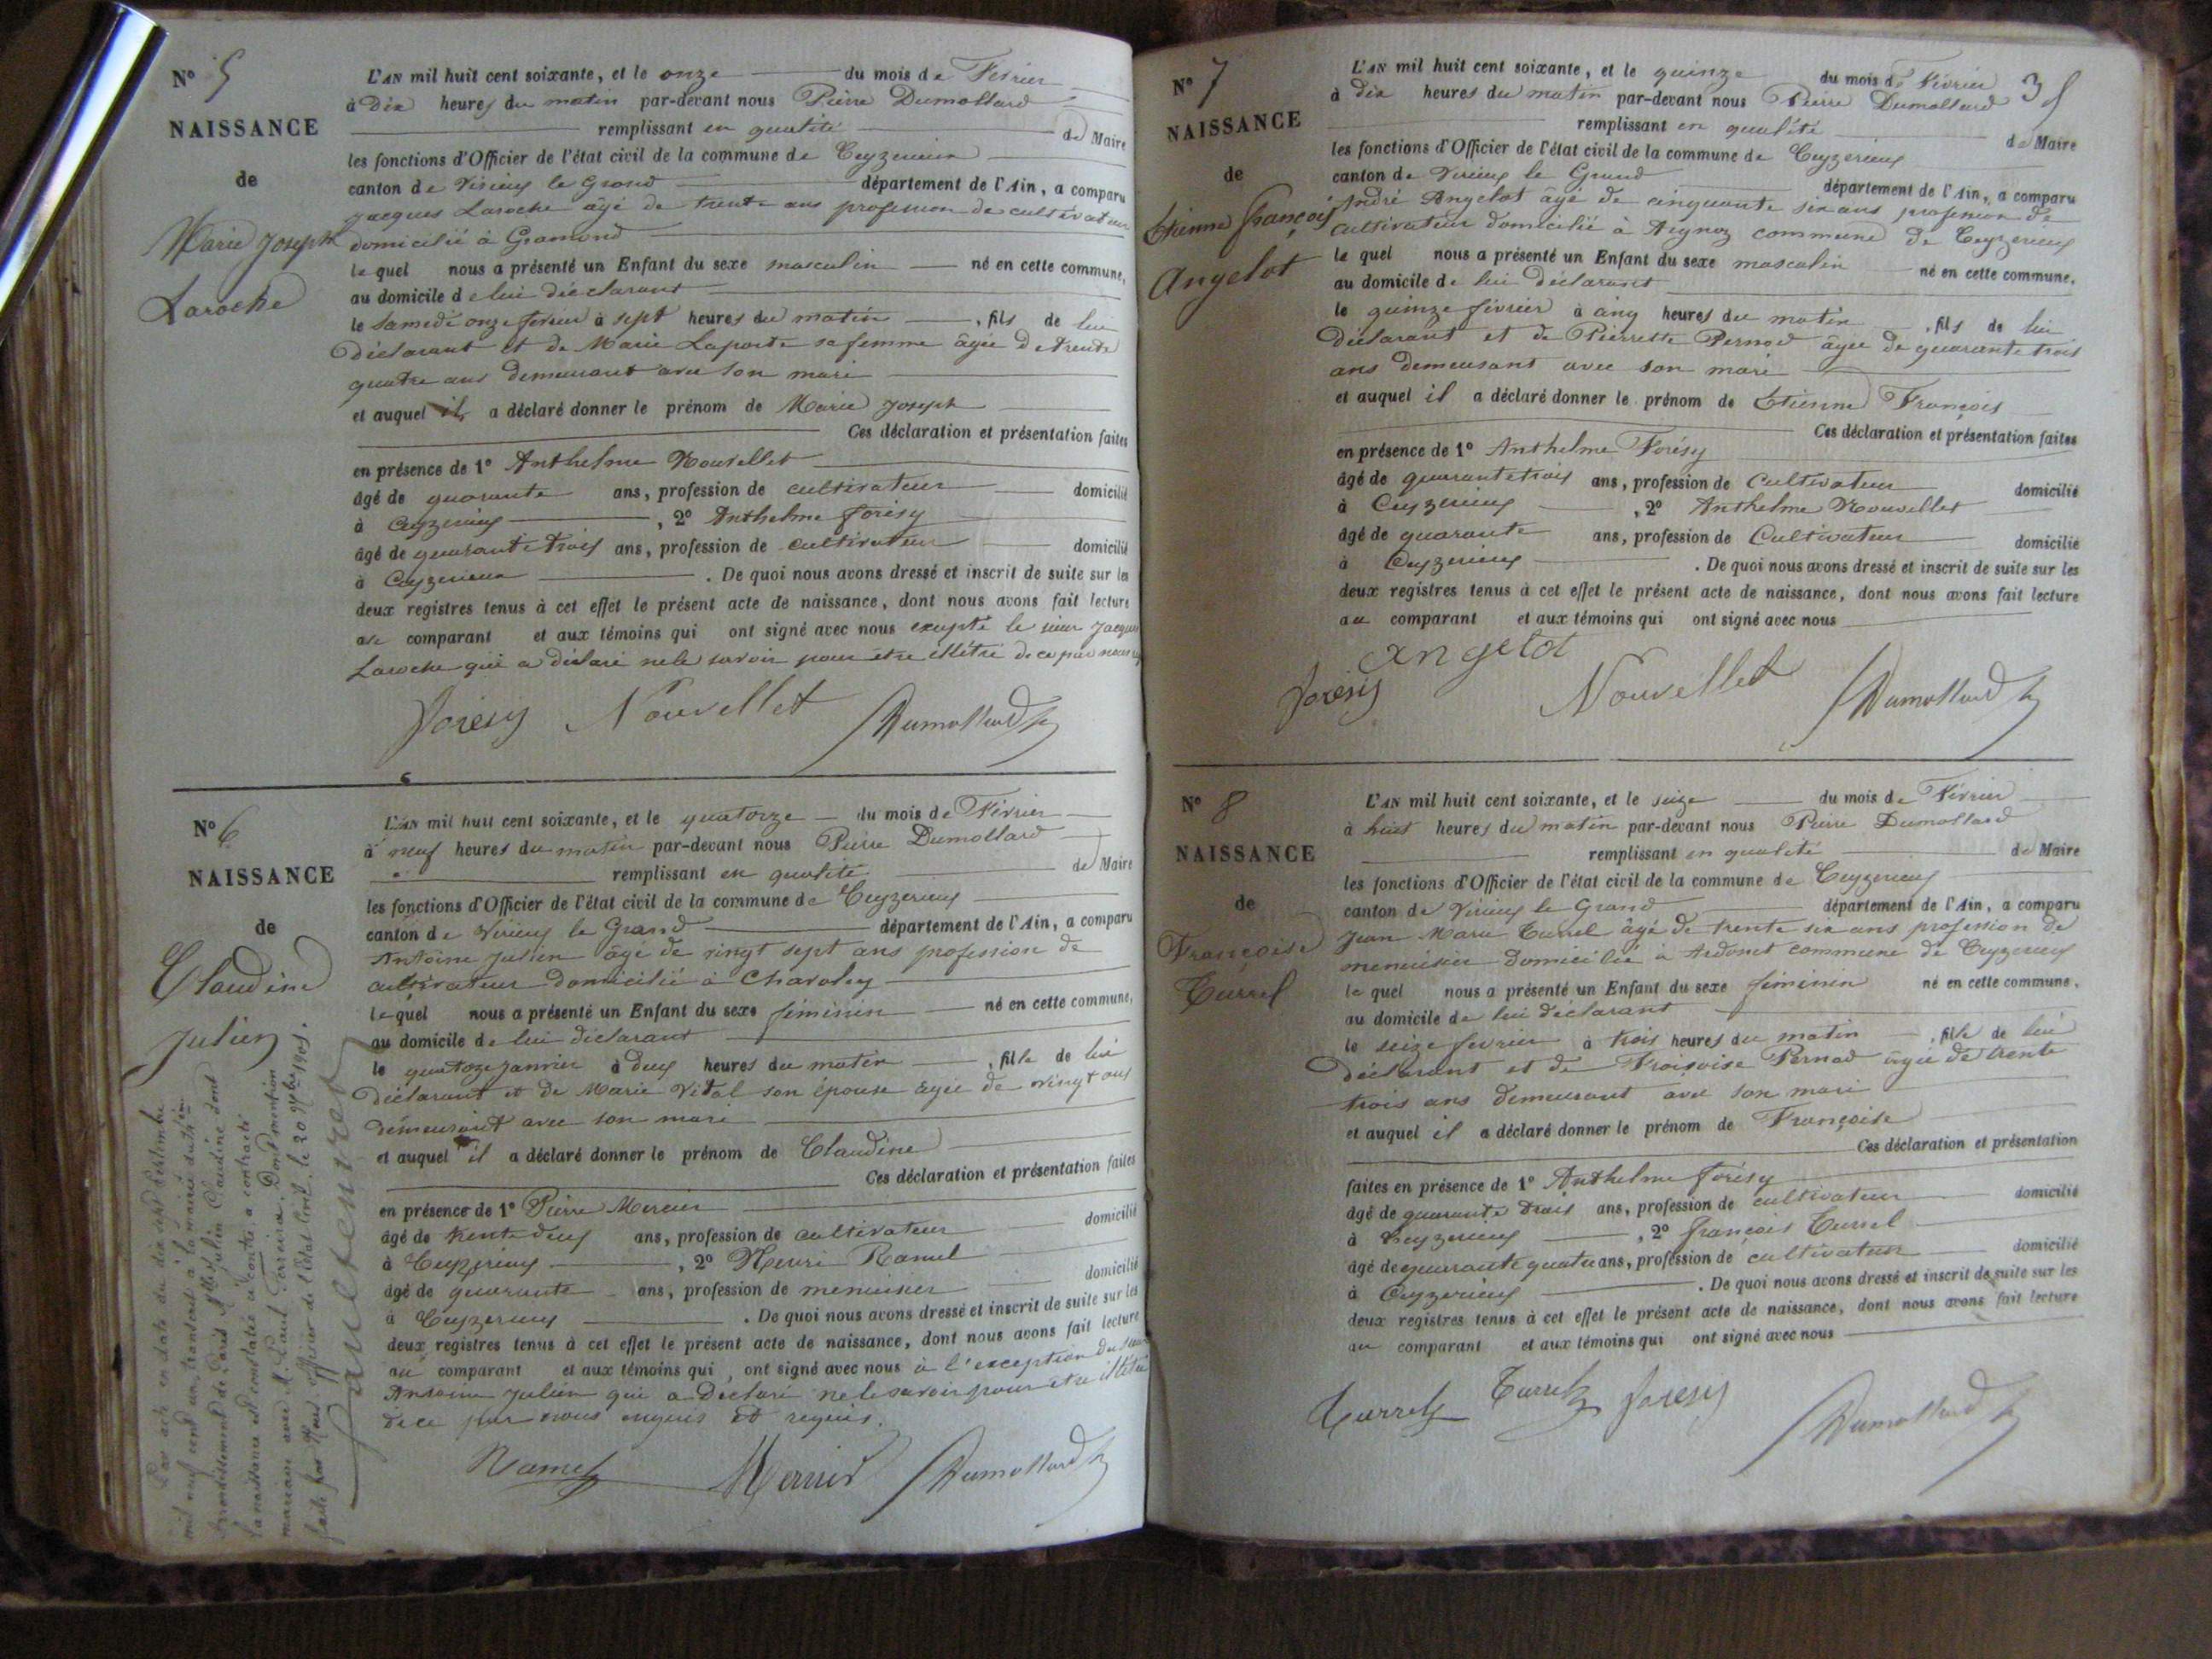 N° 5
NAISSANCE
de
Marie Joseph
Laroche
L'AN mil huit cent soixante, et le onze du mois de Février
à Dix heures du matin par-devant nous Pierre Dumollard
remplissant en qualité de Maire
les fonctions d'Officier de l'état civil de la commune de Ceyzerieux
canton de Virieux le Grand département de l'Ain, a comparu
Jacques Laroche âgé de trente ans profession de cultivateur
domicilié à Gramond
lequel nous a présenté un Enfant du sexe masculin né en cette commune,
au domicile de lui déclarant
le Samedi onze fevrier à sept heures du matin , fils de lui
Déclarant et de Marie Laporte sa femme âgée de trente
quatre ans demeurant avec son mari
et auquel il a déclaré donner le prénom de Marie Joseph
Ces déclaration et présentation faites
en présence de 1° Anthelme Nouvellet
âgé de quarante ans, profession de cultivateur domicilié
à Ceyzerieux , 2° Anthelme forésy
âgé de quarante trois ans, profession de cultivateur domicilié
à Ceyzerieux . De quoi nous avons dressé et inscrit de suite sur les
deux registres tenus à cet effet le présent acte de naissance, dont nous avons fait lecture
au comparant et aux témoins qui ont signé avec nous excepté le sieur Jacques
Laroche qui a déclaré ne le savoir pour être illétré de ce par nous
foresy Nouvellet Dumollard
N° 6
NAISSANCE
de
Claudine
Julien
L'AN mil huit cent soixante, et le quatorze du mois de Février
à neuf heures du matin par-devant nous Pierre Dumollard
remplissant en qualité de Maire
les fonctions d'Officier de l'état civil de la commune de Ceyzerieux
canton de Virieux le Grand département de l'Ain, a comparu
Antoine Julien âgé de vingt sept ans profession de
cultivateur domicilié à Chavoley
lequel nous a présenté un Enfant du sexe féminin né en cette commune,
au domicile de lui déclarant
le quatorze janvier à deux heures du matin , fille de lui
Déclarant et de Marie Vital son épouse âgée de vingt ans
demeurant avec son mari
et auquel il a déclaré donner le prénom de Claudine
Ces déclaration et présentation faites
en présence de 1° Pierre Mercier
âgé de trente deux ans, profession de cultivateur domicilié
à Ceyzerieux , 2° Henri Ramel
âgé de quarante ans, profession de menuisier domicilié
à Ceyzerieux . De quoi nous avons dressé et inscrit de suite sur les
deux registres tenus à cet effet le présent acte de naissance, dont nous avons fait lecture
au comparant et aux témoins qui , ont signé avec nous à l'exception du sieur
Antoine Julien qui a Déclaré ne le savoir pour être illétré
de ce par nous enquis et requis.
Ramel Mercier Dumollard
Par acte en date du dix sept septembre
mil neuf cent un, transcrit à la mairie du
arrondissement de Paris, Julien Claudine dont
la naissance est constatée ci-contre, a contracté
mariage avec M. Paul . Dont mention
faite par Nous officier de l'état civil, le 20 1901.
N° 7
NAISSANCE
de
Etienne françois
Angelot
38
L'AN mil huit cent soixante, et le quinze du mois de Février
à dix heures du matin par-devant nous Pierre Dumollard
remplissant en qualité de Maire
les fonctions d'Officier de l'état civil de la commune de Ceyzerieux
canton de Virieux le Grand département de l'Ain, a comparu
André Angelot âgé de cinquante six ans profession de
cultivateur domicilié à Aignoz commune de Ceyzerieux
lequel nous a présenté un Enfant du sexe masculin né en cette commune,
au domicile de lui déclarant
le quinze février à cinq heures du matin , fils de lui
déclarant et de Pierrette Pernod âgée de quarante trois
ans demeurant avec son mari
et auquel il a déclaré donner le prénom de Etienne François
Ces déclaration et présentation faites
en présence de 1° Anthelme Forésy
âgé de quarante trois ans, profession de Cultivateur domicilié
à Ceyzerieux , 2° Anthelme Nouvellet
âgé de quarante ans, profession de Cultivateur domicilié
à Ceyzerieux . De quoi nous avons dressé et inscrit de suite sur les
deux registres tenus à cet effet le présent acte de naissance, dont nous avons fait lecture
au comparant et aux témoins qui ont signé avec nous
angelot
foresy Nouvellet Dumollard
N° 8
NAISSANCE
de
Françoise
Currel
L'AN mil huit cent soixante, et le seize du mois de Février
à huit heures du matin par-devant nous Pierre Dumollard
remplissant en qualité de Maire
les fonctions d'Officier de l'état civil de la commune de Ceyzerieux
canton de Virieux le Grand département de l'Ain, a comparu
Jean Marie Currel âgé de trente six ans profession de
menuisier domicilié à Ardosset commune de Ceyzerieux
lequel nous a présenté un Enfant du sexe féminin né en cette commune,
au domicile de lui déclarant
le seize fevrier à trois heures du matin , fille de lui
déclarant et de Françoise Pernod âgée de trente
trois ans demeurant avec son mari
et auquel il a déclaré donner le prénom de Françoise
Ces déclaration et présentation
faites en présence de 1° Anthelme forésy
âgé de quarante trois ans, profession de cultivateur domicilié
à Ceyzerieux , 2° françois Currel
âgé de quarante quatre ans, profession de cultivateur domicilié
à Ceyzerieux . De quoi nous avons dressé et inscrit de suite sur les
deux registres tenus à cet effet le présent acte de naissance, dont nous avons fait lecture
au comparant et aux témoins qui ont signé avec nous
Currel Currel foresy
Dumollard